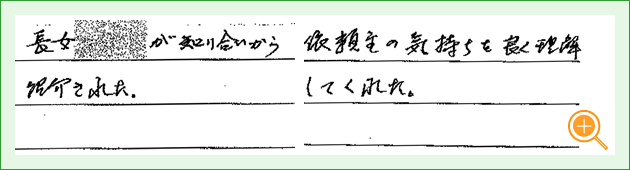 長女 が知り合いから
紹介された。
依頼主の気持ちを良く理解
してくれた。